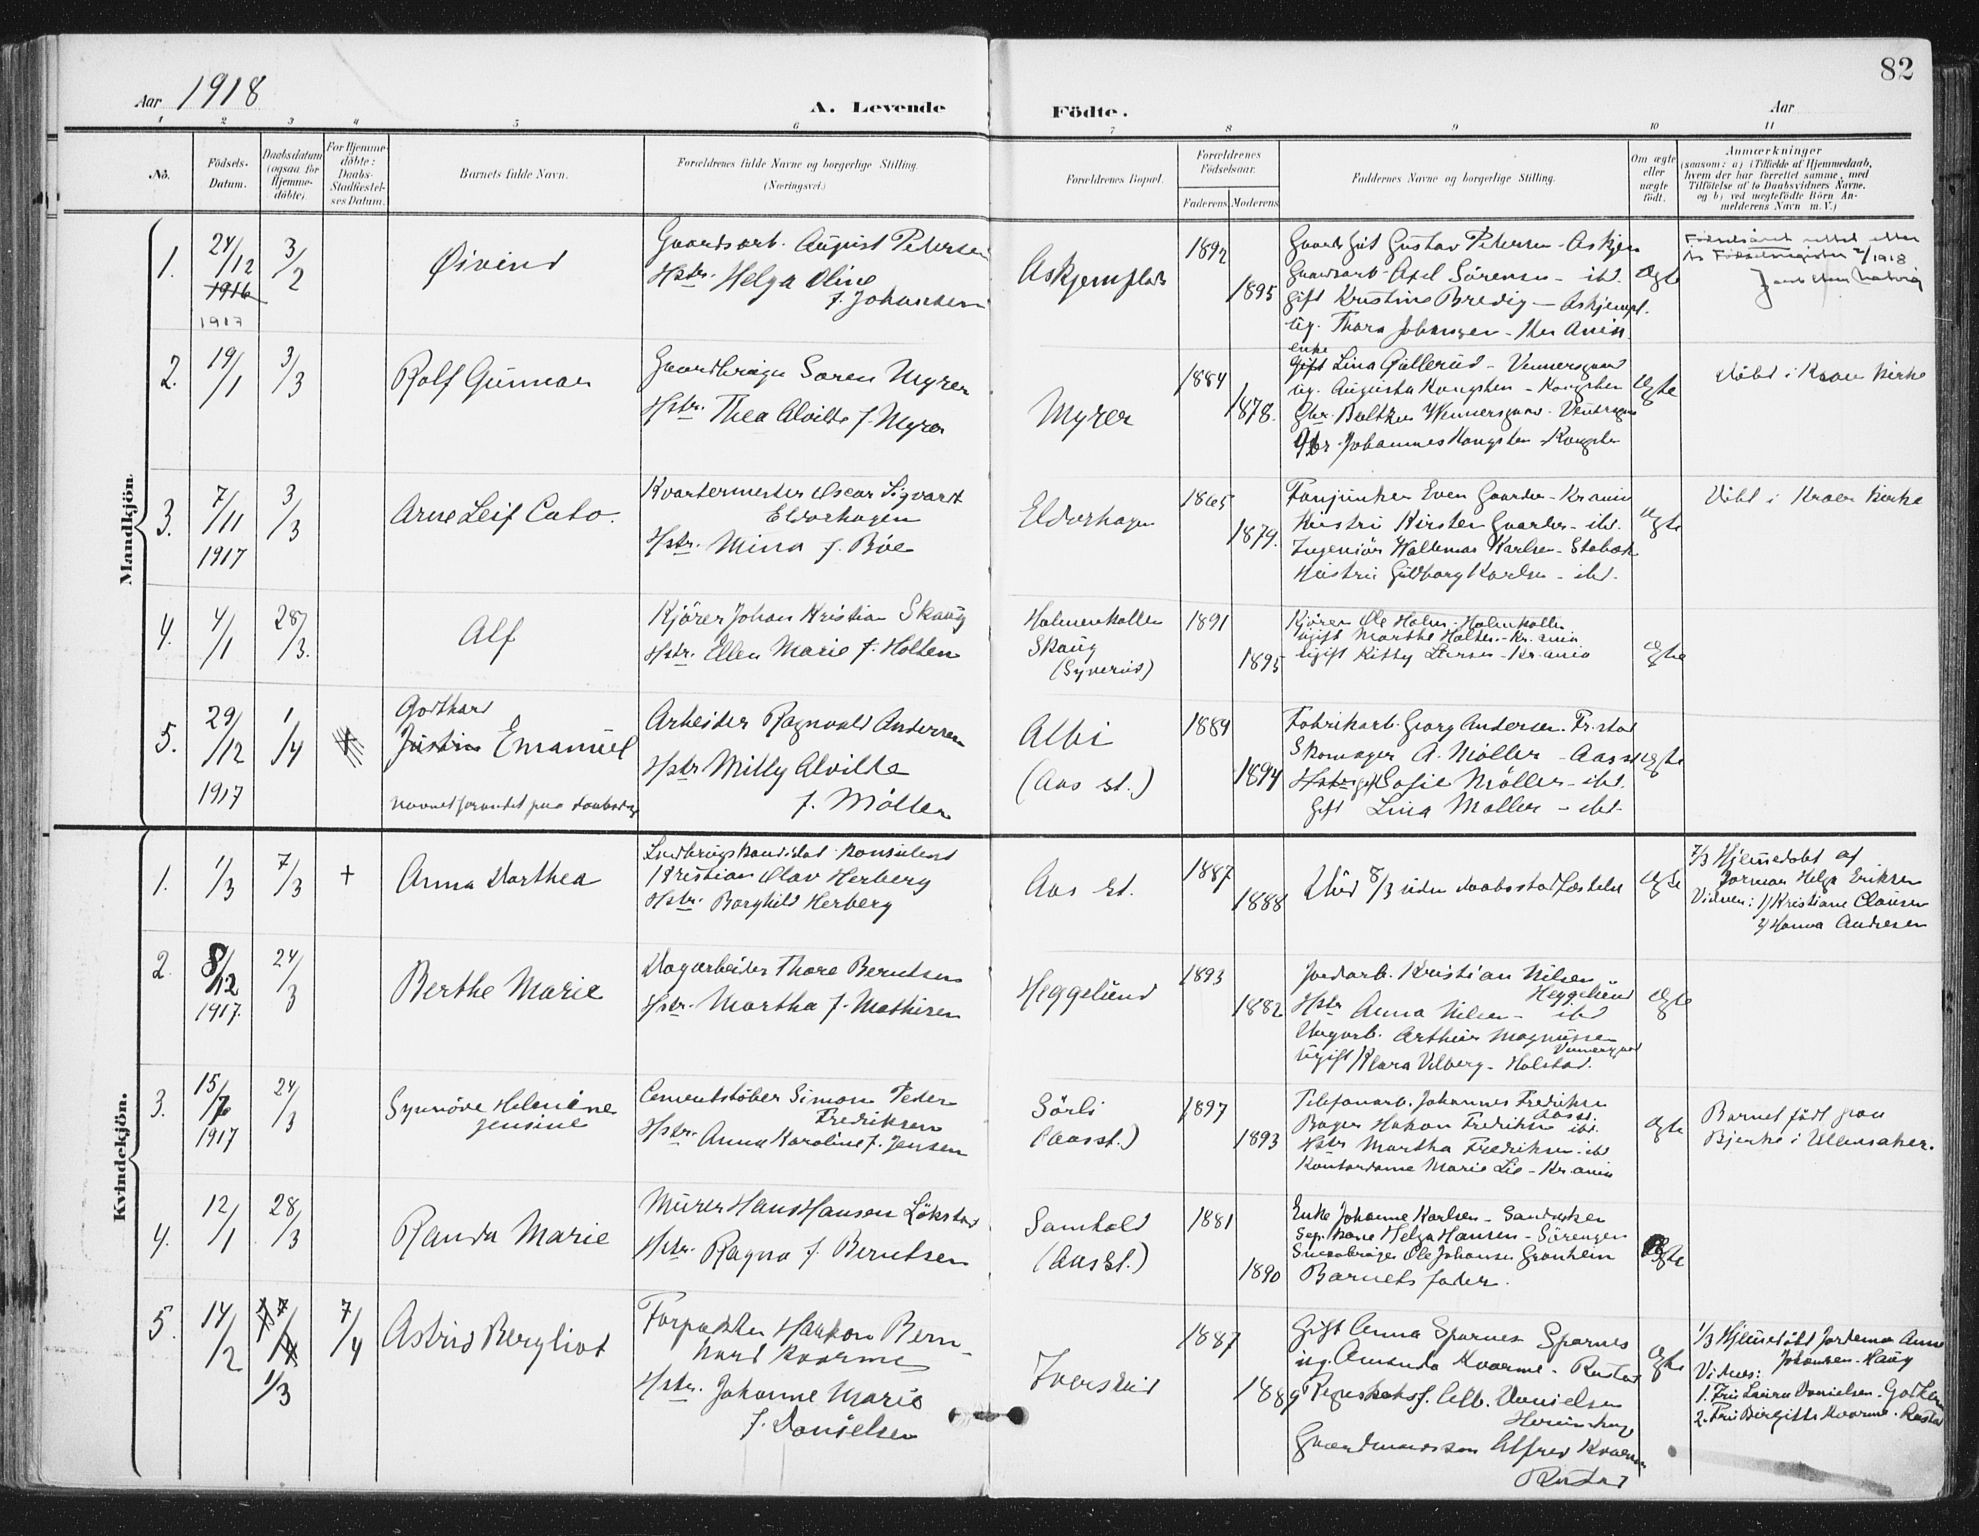 82
Aar 1918
A. Levende
Födte.
Aar
1 2 3 4 5 6 7 8 9 10 11
No.
Födsels-
Datum.
Daabsdatum
(ogsaa for
Hjemme-
döbte).
For Hjemme-
döbte:
Daabs-
Stadfæstel-
ses Datum.
Barnets fulde Navn.
Forældrenes fulde Navne og borgerlige Stilling.
(Næringsvei.)
Forældrenes Bopæl.
Forældrenes
Födselsaar.
Faderens Moderens
Faddernes Navne og borgerlige Stilling.
Om ægte
eller
uægte
födt.
Anmærkninger
(saasom: a) i Tilfælde af Hjemmedaab,
hvem der har forrettet samme, med
Tilföielse af to Daabsvidners Navne.
og b) ved uægtefödte Börn An-
melderens Navn m. V.)
Mandkjön.
1.
24/12
1916
1917
3/2
Øivind
Gaardsarb. August Petersen
Hstr. Helga Oline
f. Johansen
Askjemplads
1892
1895
Gustav Petersen - Askjem
Gaardsarb. Axel Sörensen - ibd.
Gift Kristine Bredig - Askjempl.
Ug. Thora Johansen
Ægte
Födselsaaret rettet efter
2.
19/1
3/3
Rolf Gunnar
Gaardbruger Soren Myrer
Hstr. Thea Alvilde f. Myrer
Myrer
1884
1878.
enke
Gift Lina Gullerud
Ug. Augusta Kongsten - Kongsten
Gbr. Johannes Kongsten - Kongsten
Ægte
Döbt i Kroer Kirke
3.
7/11
1917
3/3
Arne Leif Cato.
Kvartermester Oscar Sigvardt
Eldorhagen
Hstr. Mina f. Böe
Eldorhagen
1865
1879.
Fanjunker Even Gaarder - Kr.ania
Hustru Kirsten Gaarder - ibd.
Ingeniör Waldemar Karlsen - Stabæk
Hustru Gudborg Karlsen - ibd.
Ægte
Döbt i Kroer Kirke
4.
4/1
28/3.
Alf
Kjörer Johan Kristian Skaug
Hstr. Ellen Marie f. Holten
Holmenkollen
Skaug
(Syverud)
1891
1895
Kjörer Ole Holm - Holmenkollen
Ugift Marthe Holten - Kr.ania
Ugift Kitty Larsen - Kr.ania
Ægte
5.
29/12
1917
1/4
Godthard
Justin Emanuel
Navnet forandret paa daabsdag
Arbeider Ragnvald Andersen
Hstr. Milly Alvilde
f. Möller
Albi
(Aas st.)
1889
1894
Fabrikarb. Georg Andersen. Fr.stad
Skomager A. Möller - Aas st.
Hstr. gift Sofie Möller - ibd.
Gift Lina Möller - ibd.
Ægte
Kvindekjön.
1.
1/3
7/3
+
Anna Dorthea
Landbrugskandidat Konsulent
Kristian Olav Herberg
Hstr. Borghild Herberg
Aas st.
1887
1888
Död 8/3 uden daabsstadfæstelse
Ægte
7/3 Hjemmedöbt af
Jormor Helga Eriksen
Vidner: 1) Kristiane Clausen
2) Hanna Andresen
2.
8/12
1917.
24/3
Berthe Marie
Dagarbeider Thore Berntsen
Hstr. Martha f. Mathisen
Heggelund
1893
1882
Jordarb. Kristian Nilsen
Heggelund
Hstr. Anna Nilsen - ibd
Arthur Magnussen
Ugift Klara Vilberg - Holstad.
Ægte
3.
15/7
1917
24/3
Synnöve Helmine
Jensine
Cementstöber Simon Peder
Fredriksen
Hstr. Anna Karoline f. Jensen
Sörli
(Aas st.)
1897
1893
Telefonarb. Johannes Fredriksen
Aas st.
Bager Hakon Fredriksen ibd.
Hstr. Martha Fredriksen - ibd
Kontordame Marie Lie - Kr.ania
Ægte
Barnet födt paa
Bjerke i Ullensaker.
4.
12/1
28/3
Randa Marie
Murer Hans Hansen Lökstad
Hstr. Ragna f. Berntsen
Samhold
(Aas st.)
1881
1890
Enke Johanne Karlsen - Sandviken
Sep. Kone Helga Hansen - Sörengen
Smaabruger Ole Johansen Gronheim
Barnets fader.
Ægte
5.
14/2
1/3
7/4
Astrid Bergliot
Forpakter Haakon Bern-
hard Kvarme
Hstr. Johanne Marie
f. Danielsen
Iverslud
1887
1889
Gift Anna Sparnes Sparnes
Ug. Amanda Kvarme - Rustad
Alb. Danielsen
Gaardmandssön Alfred Kvarme
Rustad
Ægte
1/3 Hjemmedöbt Jordemor Anne
Johansen - Haug
Vidner:
1. Fru Laura Danielsen
2. Fru Birgitte Kvarme. Rustad